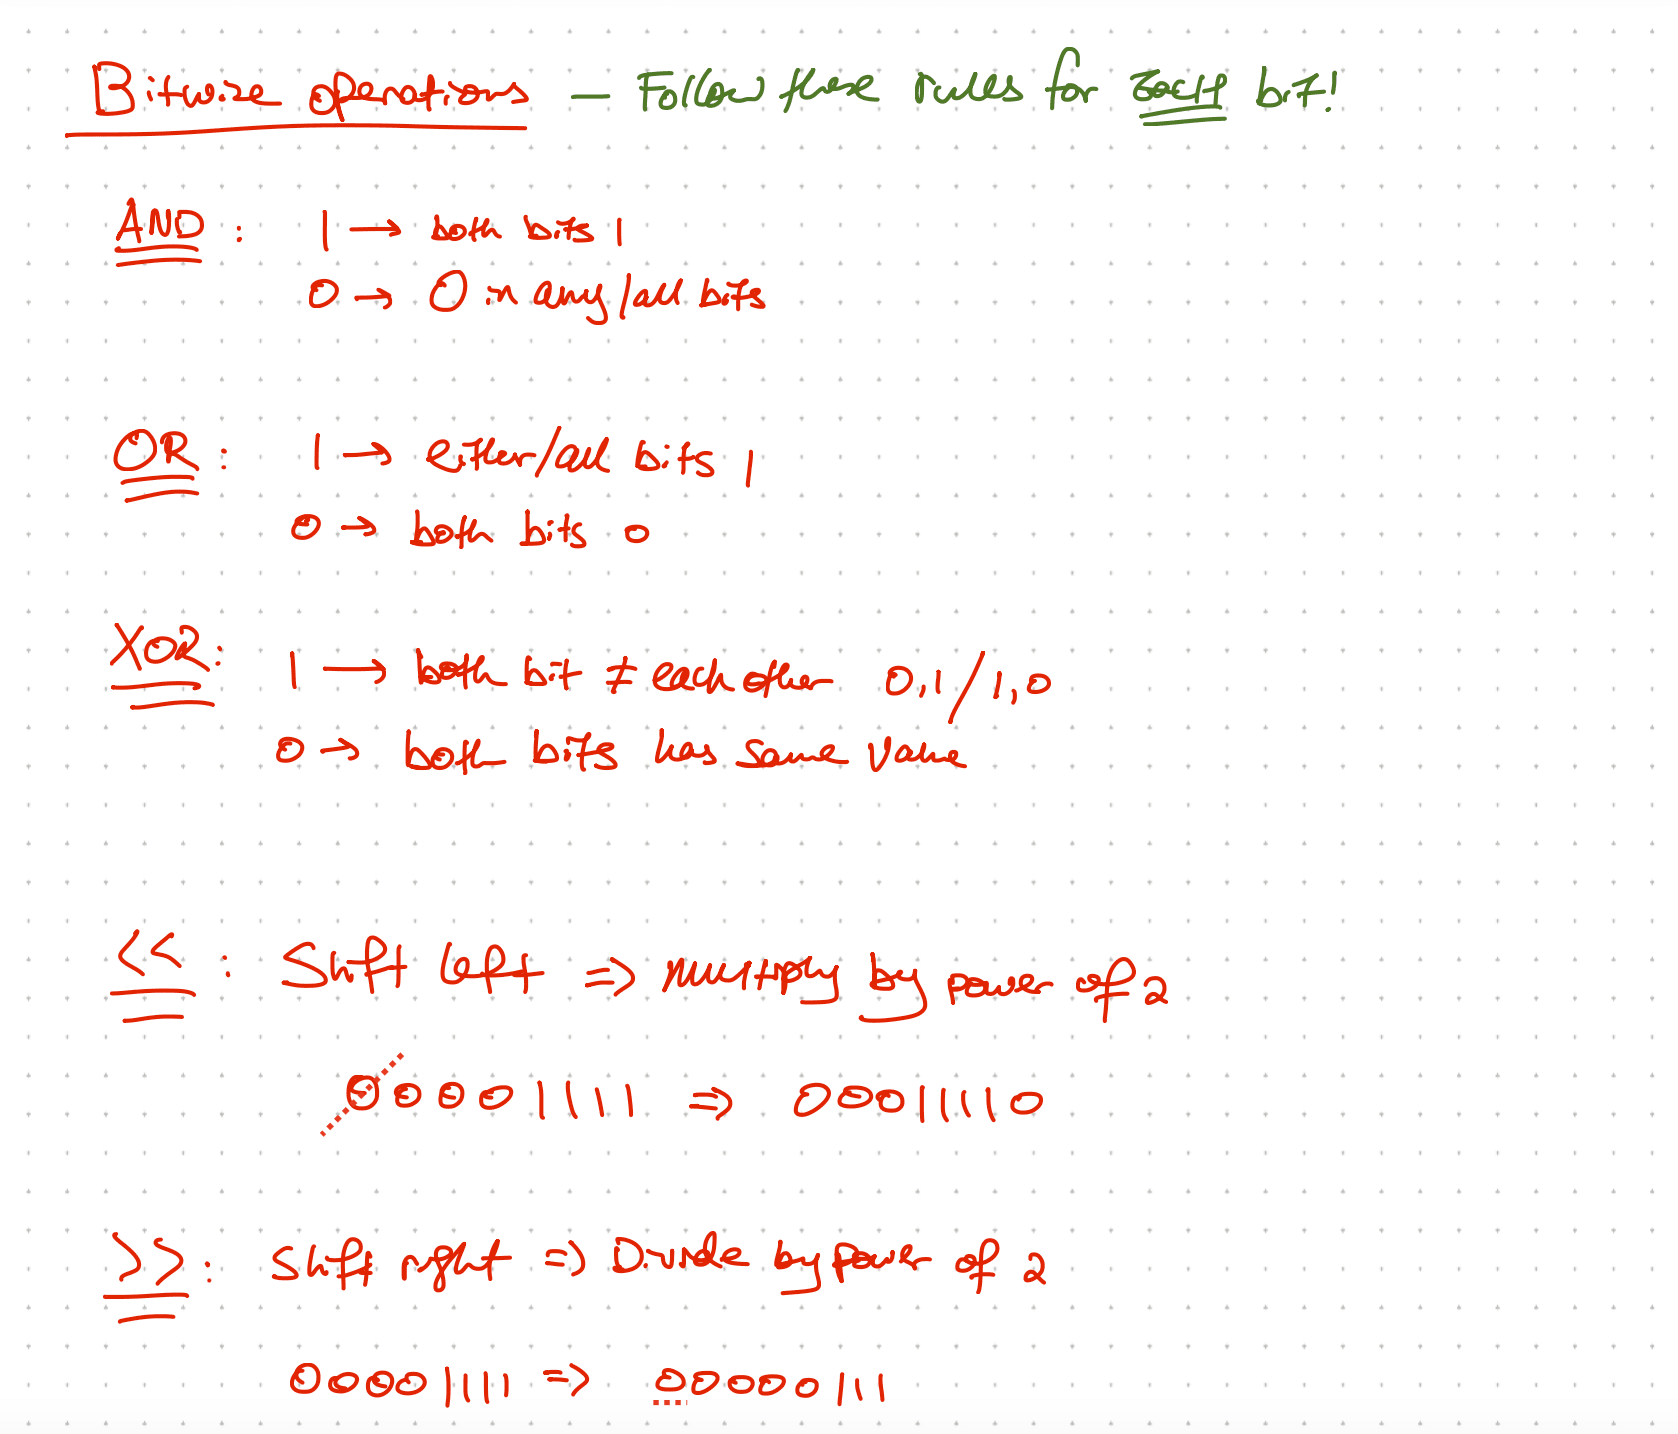 Bitwise operations — Follow these rules for EACH bit!
AND : 1 → both bits 1
0 → 0 in any/all bits
OR : 1 → either/all bits 1
0 → both bits 0
XOR : 1 → both bit ≠ each other 0,1/1,0
0 → both bits has same value
<< : Shift left ⇒ Multiply by power of 2
00001111 ⇒ 00011110
>> : Shift right ⇒ Divide by power of 2
00001111 ⇒ 00000111